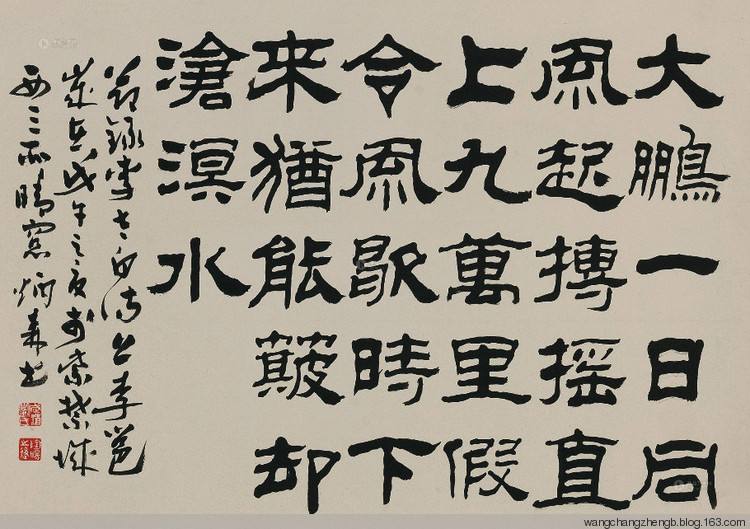 大鵬一日同
風起搏摇直
上九萬里假
令風歇時下
来猶能簸却
滄溟水
節録李太白诗上李邕
歲在戊午之夏於紫禁城
西三所晴窓炳森书
wangchangzhengb.blog.163.com